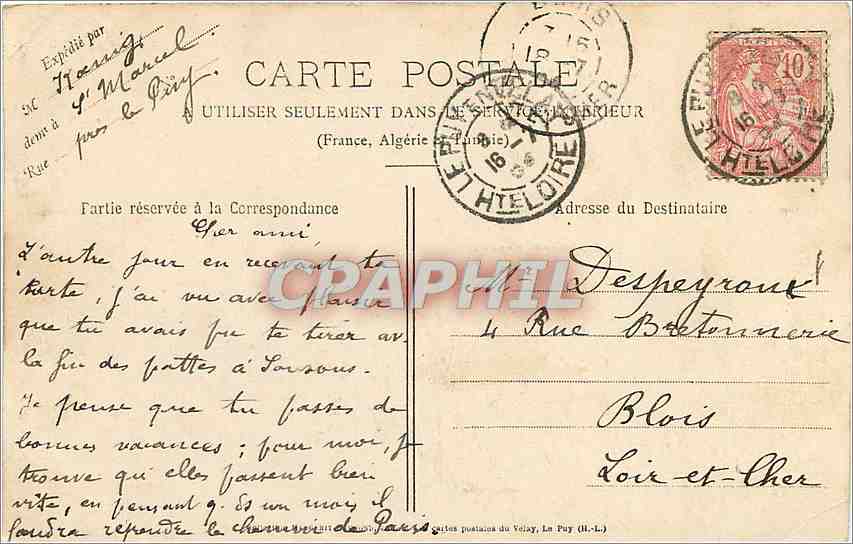 Expédié par
M Kanig
demt à St Marcel
Rue près le Puy.
CARTE POSTALE
A UTILISER SEULEMENT DANS LE SERVICE INTÉRIEUR
(France, Algérie et Tunisie)
LE PUY-EN-VELAY
16
HTE LOIRE
BLOIS
LOIR-ET-CHER
10
LE PUY
16
HTE LOIRE
Partie réservée à la Correspondance
Cher ami,
L'autre jour en recevant ta
karte, j'ai vu avec plaisir
que tu avais pu te tirer av.
la fin des pattes à
Je pense que tu passes de
bonnes vacances ; pour moi, je
trouve qu'elles passent bien
vite, en pensant q. ds un mois il
faudra reprendre le chemin de Paris.
Adresse du Destinataire
Mr Despeyroux
4 Rue Bretonnerie
Blois
Loir-et-Cher
cartes postales du Velay, Le Puy (H.-L.)
CPAPHIL